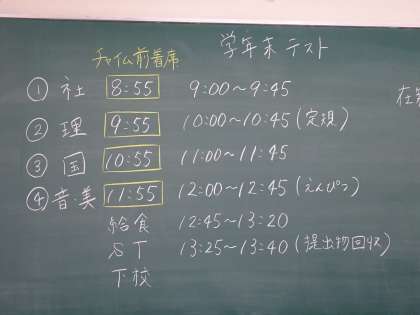 学年末テスト
チャイム前着席
① 社 8:55 9:00～9:45
② 理 9:55 10:00～10:45(定規)
③ 国 10:55 11:00～11:45
④ 音・美 11:55 12:00～12:45(えんぴつ)
給食 12:45～13:20
ST 13:25～13:40(提出物回収)
下校
在